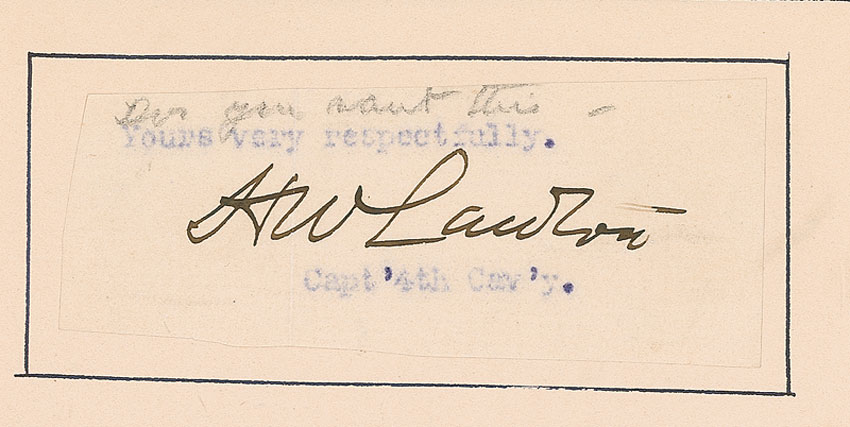 Do you want this -
Yours very respectfully.
HW Lawton
Capt '4th Cav'y.